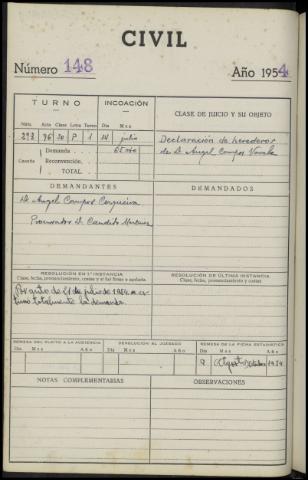 CIVIL
Número 148 Año 1954
TURNO INCOACIÓN CLASE DE JUICIO Y SU OBJETO
Núm. Año Clase Letra Turno Día Mes
293 96 20 P 1 14 julio Declaración de herederos
Cuantía Demanda de D. Angel Campos Varela
Reconvención
TOTAL
DEMANDANTES DEMANDADOS
D. Angel Campos Cerqueira
Procurador D. Candido
RESOLUCIÓN EN 1.ª INSTANCIA RESOLUCIÓN DE ÚLTIMA INSTANCIA
Clase, fecha, pronunciamiento, costas y si fué firme o apelada. Clase, fecha, pronunciamiento y costas.
Por auto de 21 de julio de 1954
totalmente la demanda.
REMESA DEL PLEITO A LA AUDIENCIA DEVOLUCIÓN AL JUZGADO REMESA DE LA FICHA ESTADÍSTICA
Día Mes Año Día Mes Año Día Mes Año
9 1954
NOTAS COMPLEMENTARIAS OBSERVACIONES